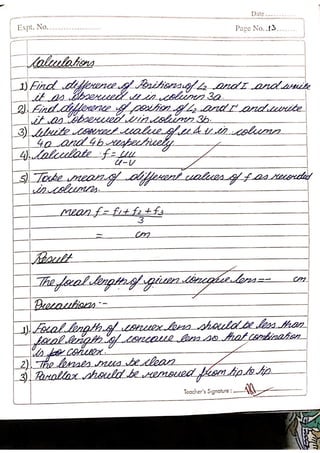 Date
Expt. No.
Page No. 13
Calculations
1) Find difference of Positions of L2 and I and write
it as observed u in column 3a
2) Find difference of position of L2 and I' and write
it as observed v in column 3b.
3) Write correct value of u & v in column
4a and 4b respectively
4) Calculate f = uv
u-v
5) Take mean of different values of f as recorded
in columns.
mean f = f1 + f2 + f3
3
= cm
Result
The focal length of given concave lens = - cm
Precautions :-
1) Focal length of convex lens should be less than
focal length of concave lens so that combination
is convex.
2) The lenses mus be clean
3) Parallax should be removed from tip to tip
Teacher's Signature :